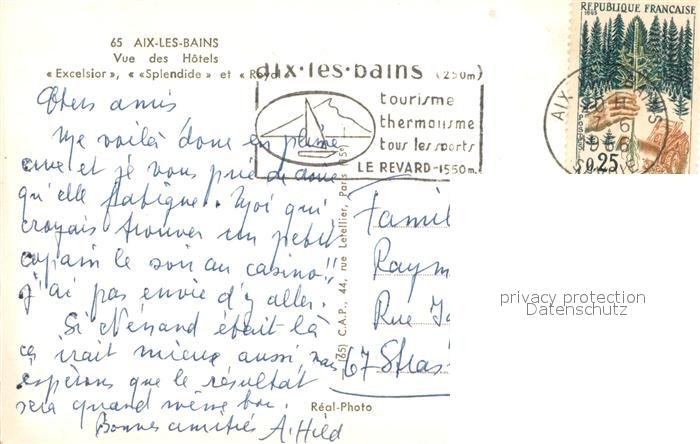 65 AIX-LES-BAINS
Vue des Hôtels
« Excelsior », « Splendide » et « Royal
aix·les·bains (250m)
tourisme
thermalisme
tous les sports
LE REVARD-1550m.
RÉPUBLIQUE FRANÇAISE
1965
POSTES
0,25
AIX LES BAINS
1966
SAVOIE
Chers amis
Me voilà donc en pleine
cure et je vous prie de croire
qu'elle fatigue. Moi qui
croyais trouver un petit
copain le soir au casino!!
j'ai pas envie d'y aller.
Si était là
ça irait mieux aussi mais
espérons que le résultat
sera quand même bon.
Bonnes amitiés A. Hild
(65) C.A.P., 44, rue Letellier, Paris (15e)
Réal-Photo
Famil
Raym
Rue
67 Stras
privacy protection
Datenschutz